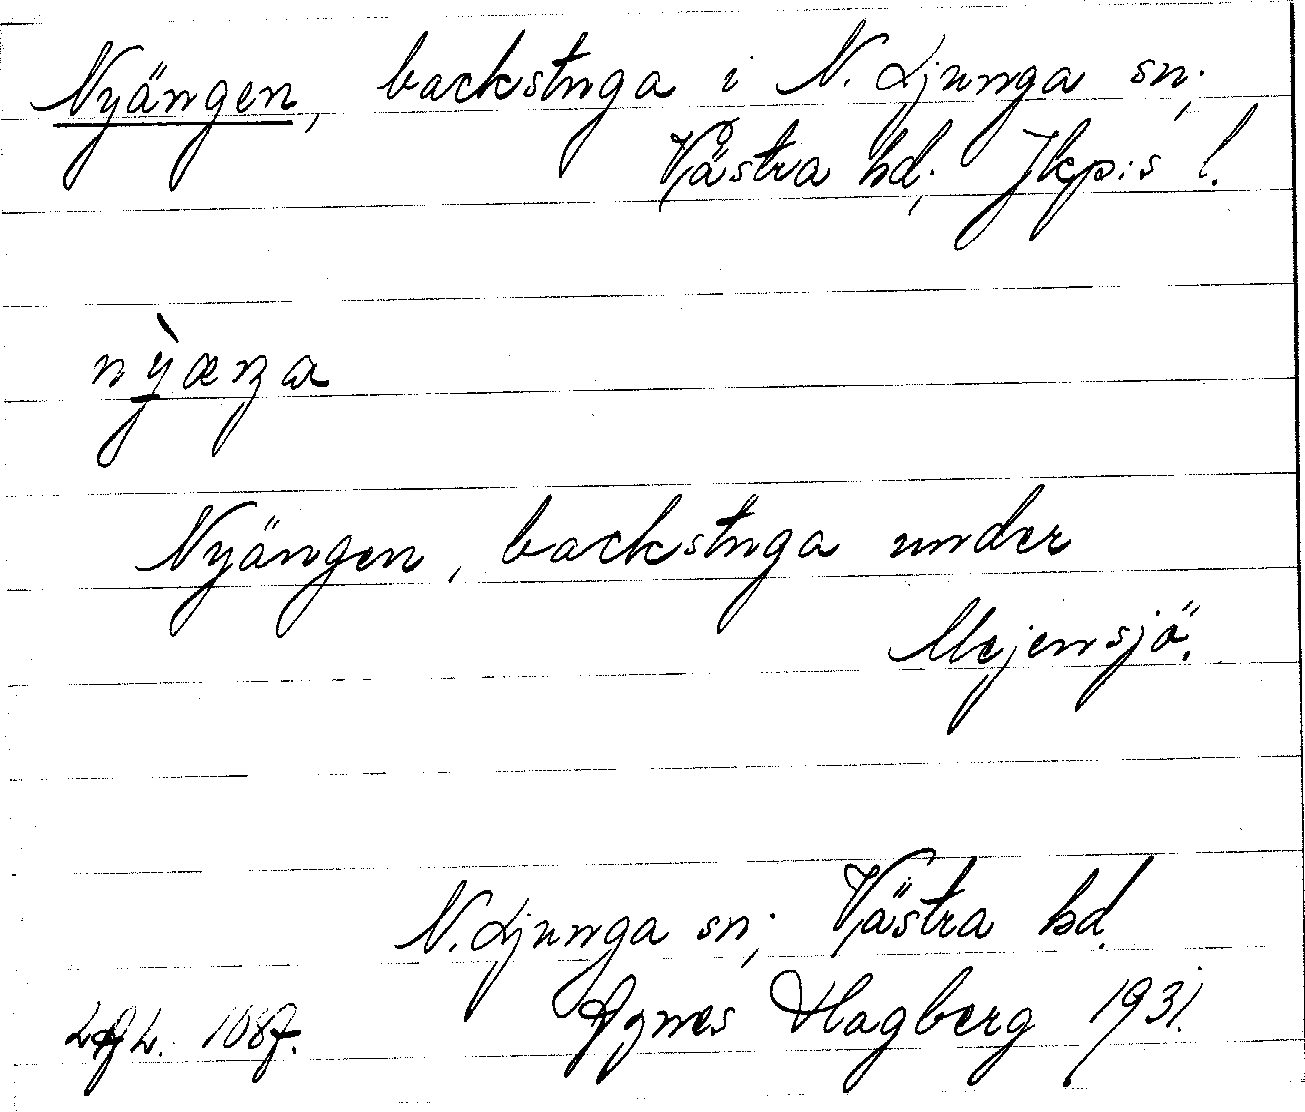 Nyängen, backstuga i N. Ljunga sn;
Västra hd; Jkp:s l.
nỳæŋa
Nyängen, backstuga under
Mejensjö.
N. Ljunga sn; Västra hd.
Agnes Hagberg 1931.